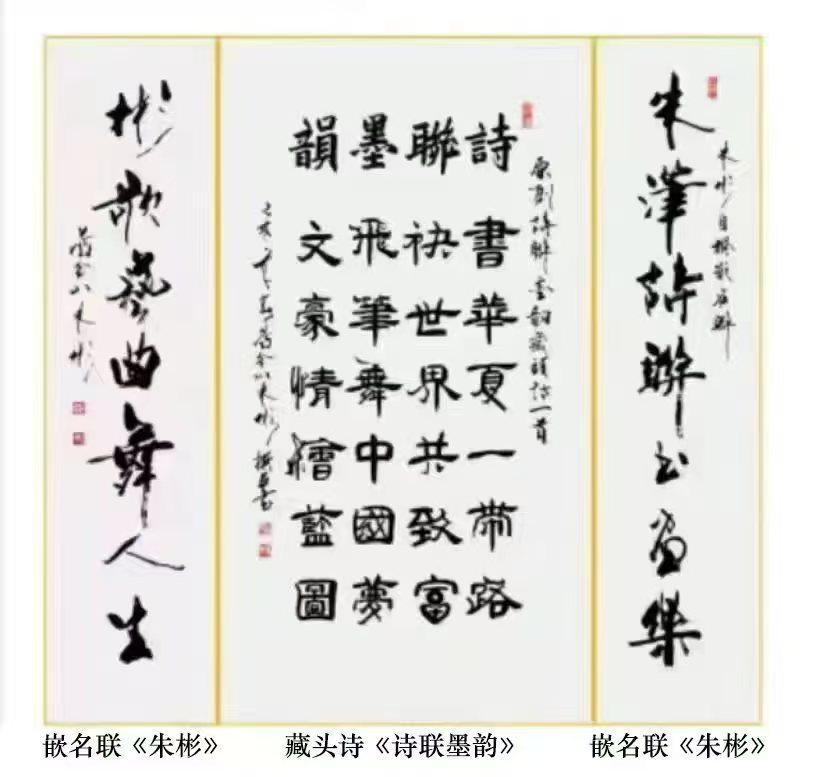 朱彬自撰嵌名聯
朱筆詩聯书画樂
原創詩聯墨韻藏頭诗一首
詩書華夏一帶路
聯袂世界共致富
墨飛筆舞中國夢
韻文豪情繪藍圖
己亥年 舊金山朱彬撰書
彬歌藝曲舞人生
舊金山朱彬
嵌名联《朱彬》
藏头诗《诗联墨韵》
嵌名联《朱彬》